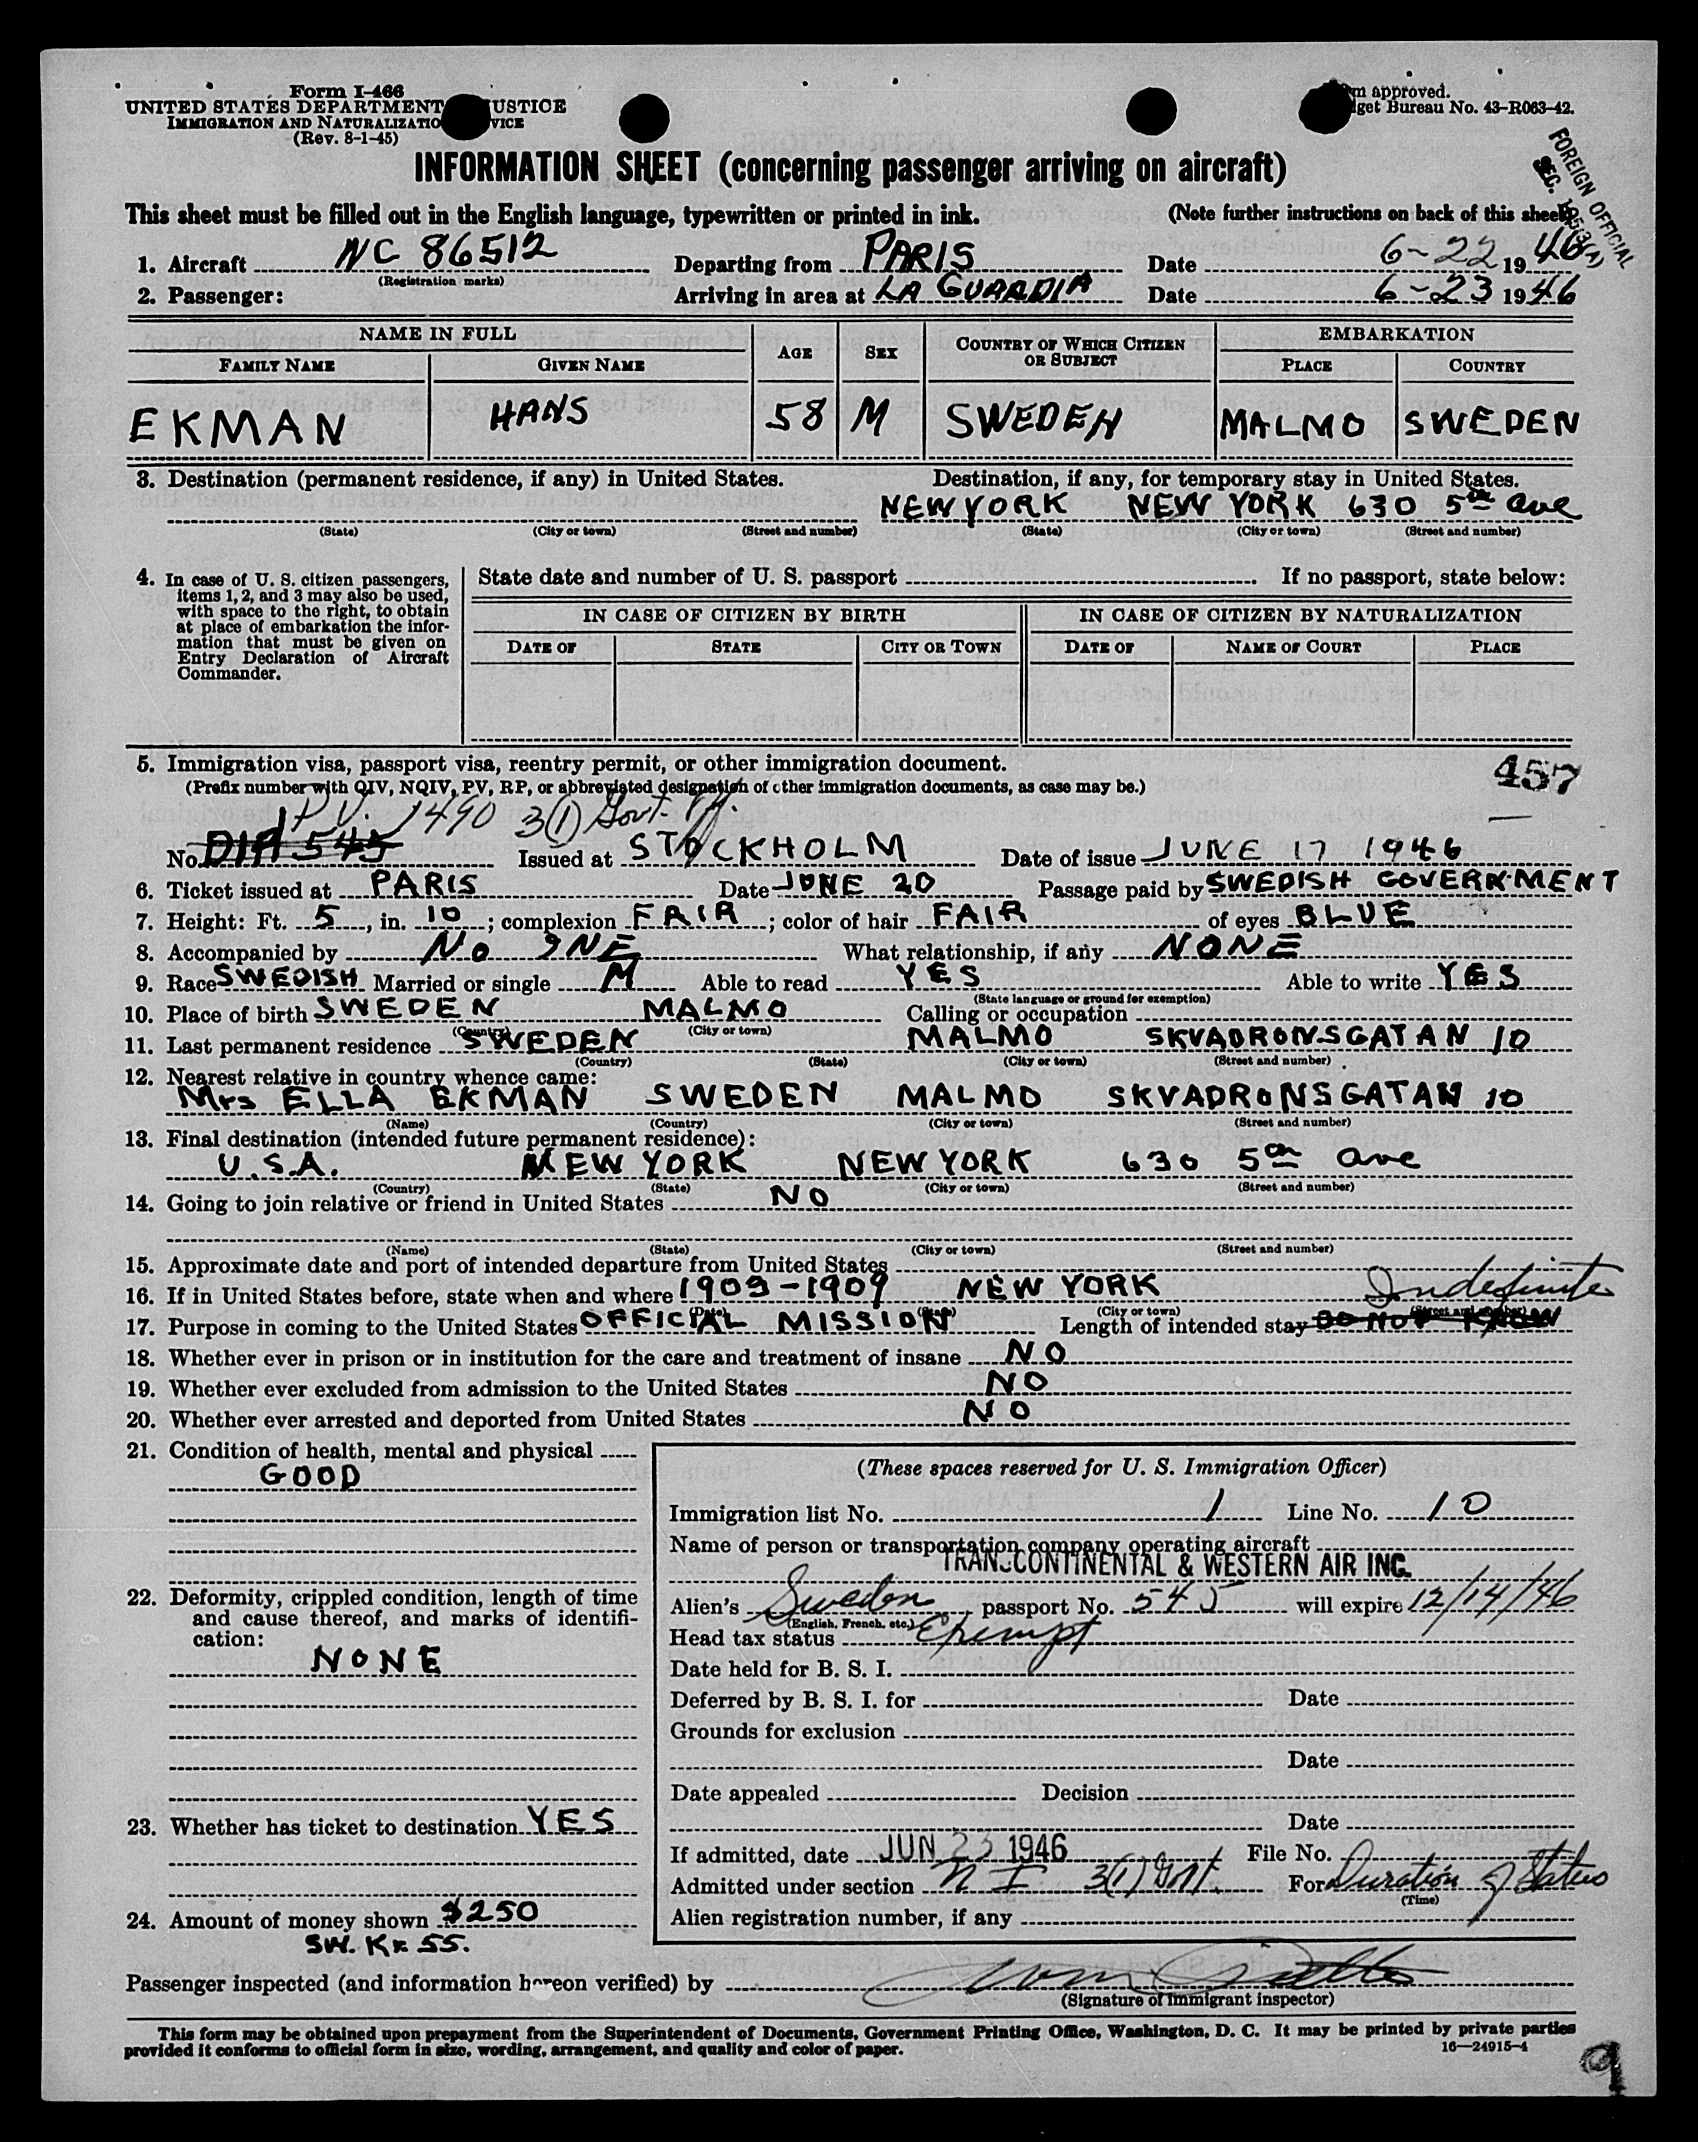 Form I-466
UNITED STATES DEPARTMENT USTICE
IMMIGRATION AND NATURALIZATIO VICE
(Rev. 8-1-45)
m approved.
get Bureau No. 43-R063-42.
FOREIGN OFFICIAL
SEC.
INFORMATION SHEET (concerning passenger arriving on aircraft)
This sheet must be filled out in the English language, typewritten or printed in ink. (Note further instructions on back of this sheet
1. Aircraft NC 86512 Departing from PARIS Date 6-22 1946
(Registration marks)
2. Passenger: Arriving in area at LA GUARDIA Date 6-23 1946
NAME IN FULL AGE SEX COUNTRY OF WHICH CITIZEN OR SUBJECT EMBARKATION
FAMILY NAME GIVEN NAME PLACE COUNTRY
EKMAN HANS 58 M SWEDEN MALMO SWEDEN
3. Destination (permanent residence, if any) in United States. Destination, if any, for temporary stay in United States.
NEW YORK NEW YORK 630 5th ave
(State) (City or town) (Street and number) (State) (City or town) (Street and number)
4. In case of U. S. citizen passengers,
items 1, 2, and 3 may also be used,
with space to the right, to obtain
at place of embarkation the infor-
mation that must be given on
Entry Declaration of Aircraft
Commander.
State date and number of U. S. passport If no passport, state below:
IN CASE OF CITIZEN BY BIRTH IN CASE OF CITIZEN BY NATURALIZATION
DATE OF STATE CITY OR TOWN DATE OF NAME OF COURT PLACE
5. Immigration visa, passport visa, reentry permit, or other immigration document.
457
(Prefix number with QIV, NQIV, PV, RP, or abbreviated designation of other immigration documents, as case may be.)
P.V. 1490 3(1) Govt.
No. DIA 545 Issued at STOCKHOLM Date of issue JUNE 17 1946
6. Ticket issued at PARIS Date JUNE 20 Passage paid by SWEDISH GOVERNMENT
7. Height: Ft. 5, in. 10; complexion FAIR; color of hair FAIR of eyes BLUE
8. Accompanied by NO ONE What relationship, if any NONE
9. Race SWEDISH Married or single M Able to read YES Able to write YES
(State language or ground for exemption)
10. Place of birth SWEDEN MALMO Calling or occupation
(Country) (City or town)
11. Last permanent residence SWEDEN MALMO SKVADRONSGATAN 10
(Country) (State) (City or town) (Street and number)
12. Nearest relative in country whence came:
Mrs ELLA EKMAN SWEDEN MALMO SKVADRONSGATAN 10
(Name) (Country) (City or town) (Street and number)
13. Final destination (intended future permanent residence):
U.S.A. NEW YORK NEW YORK 630 5th ave
(Country) (State) (City or town) (Street and number)
14. Going to join relative or friend in United States NO
(Name) (State) (City or town) (Street and number)
15. Approximate date and port of intended departure from United States
16. If in United States before, state when and where 1903-1909 NEW YORK Indefinite
(Date) (State) (City or town) (Street and number)
17. Purpose in coming to the United States OFFICIAL MISSION Length of intended stay DO NOT KNOW
18. Whether ever in prison or in institution for the care and treatment of insane NO
19. Whether ever excluded from admission to the United States NO
20. Whether ever arrested and deported from United States NO
21. Condition of health, mental and physical
GOOD
22. Deformity, crippled condition, length of time
and cause thereof, and marks of identifi-
cation:
NONE
23. Whether has ticket to destination YES
24. Amount of money shown $250
SW. Kr 55.
(These spaces reserved for U. S. Immigration Officer)
Immigration list No. 1 Line No. 10
Name of person or transportation company operating aircraft
TRANSCONTINENTAL & WESTERN AIR INC.
Alien's Sweden passport No. 545 will expire 12/14/46
(English, French, etc.)
Head tax status Exempt
Date held for B. S. I.
Deferred by B. S. I. for Date
Grounds for exclusion
Date
Date appealed Decision
Date
If admitted, date JUN 23 1946 File No.
Admitted under section N I 3(1) Govt. For Duration of Status
(Time)
Alien registration number, if any
Passenger inspected (and information hereon verified) by
(Signature of immigrant inspector)
This form may be obtained upon prepayment from the Superintendent of Documents, Government Printing Office, Washington, D. C. It may be printed by private parties
provided it conforms to official form in size, wording, arrangement, and quality and color of paper.
16—24915-4